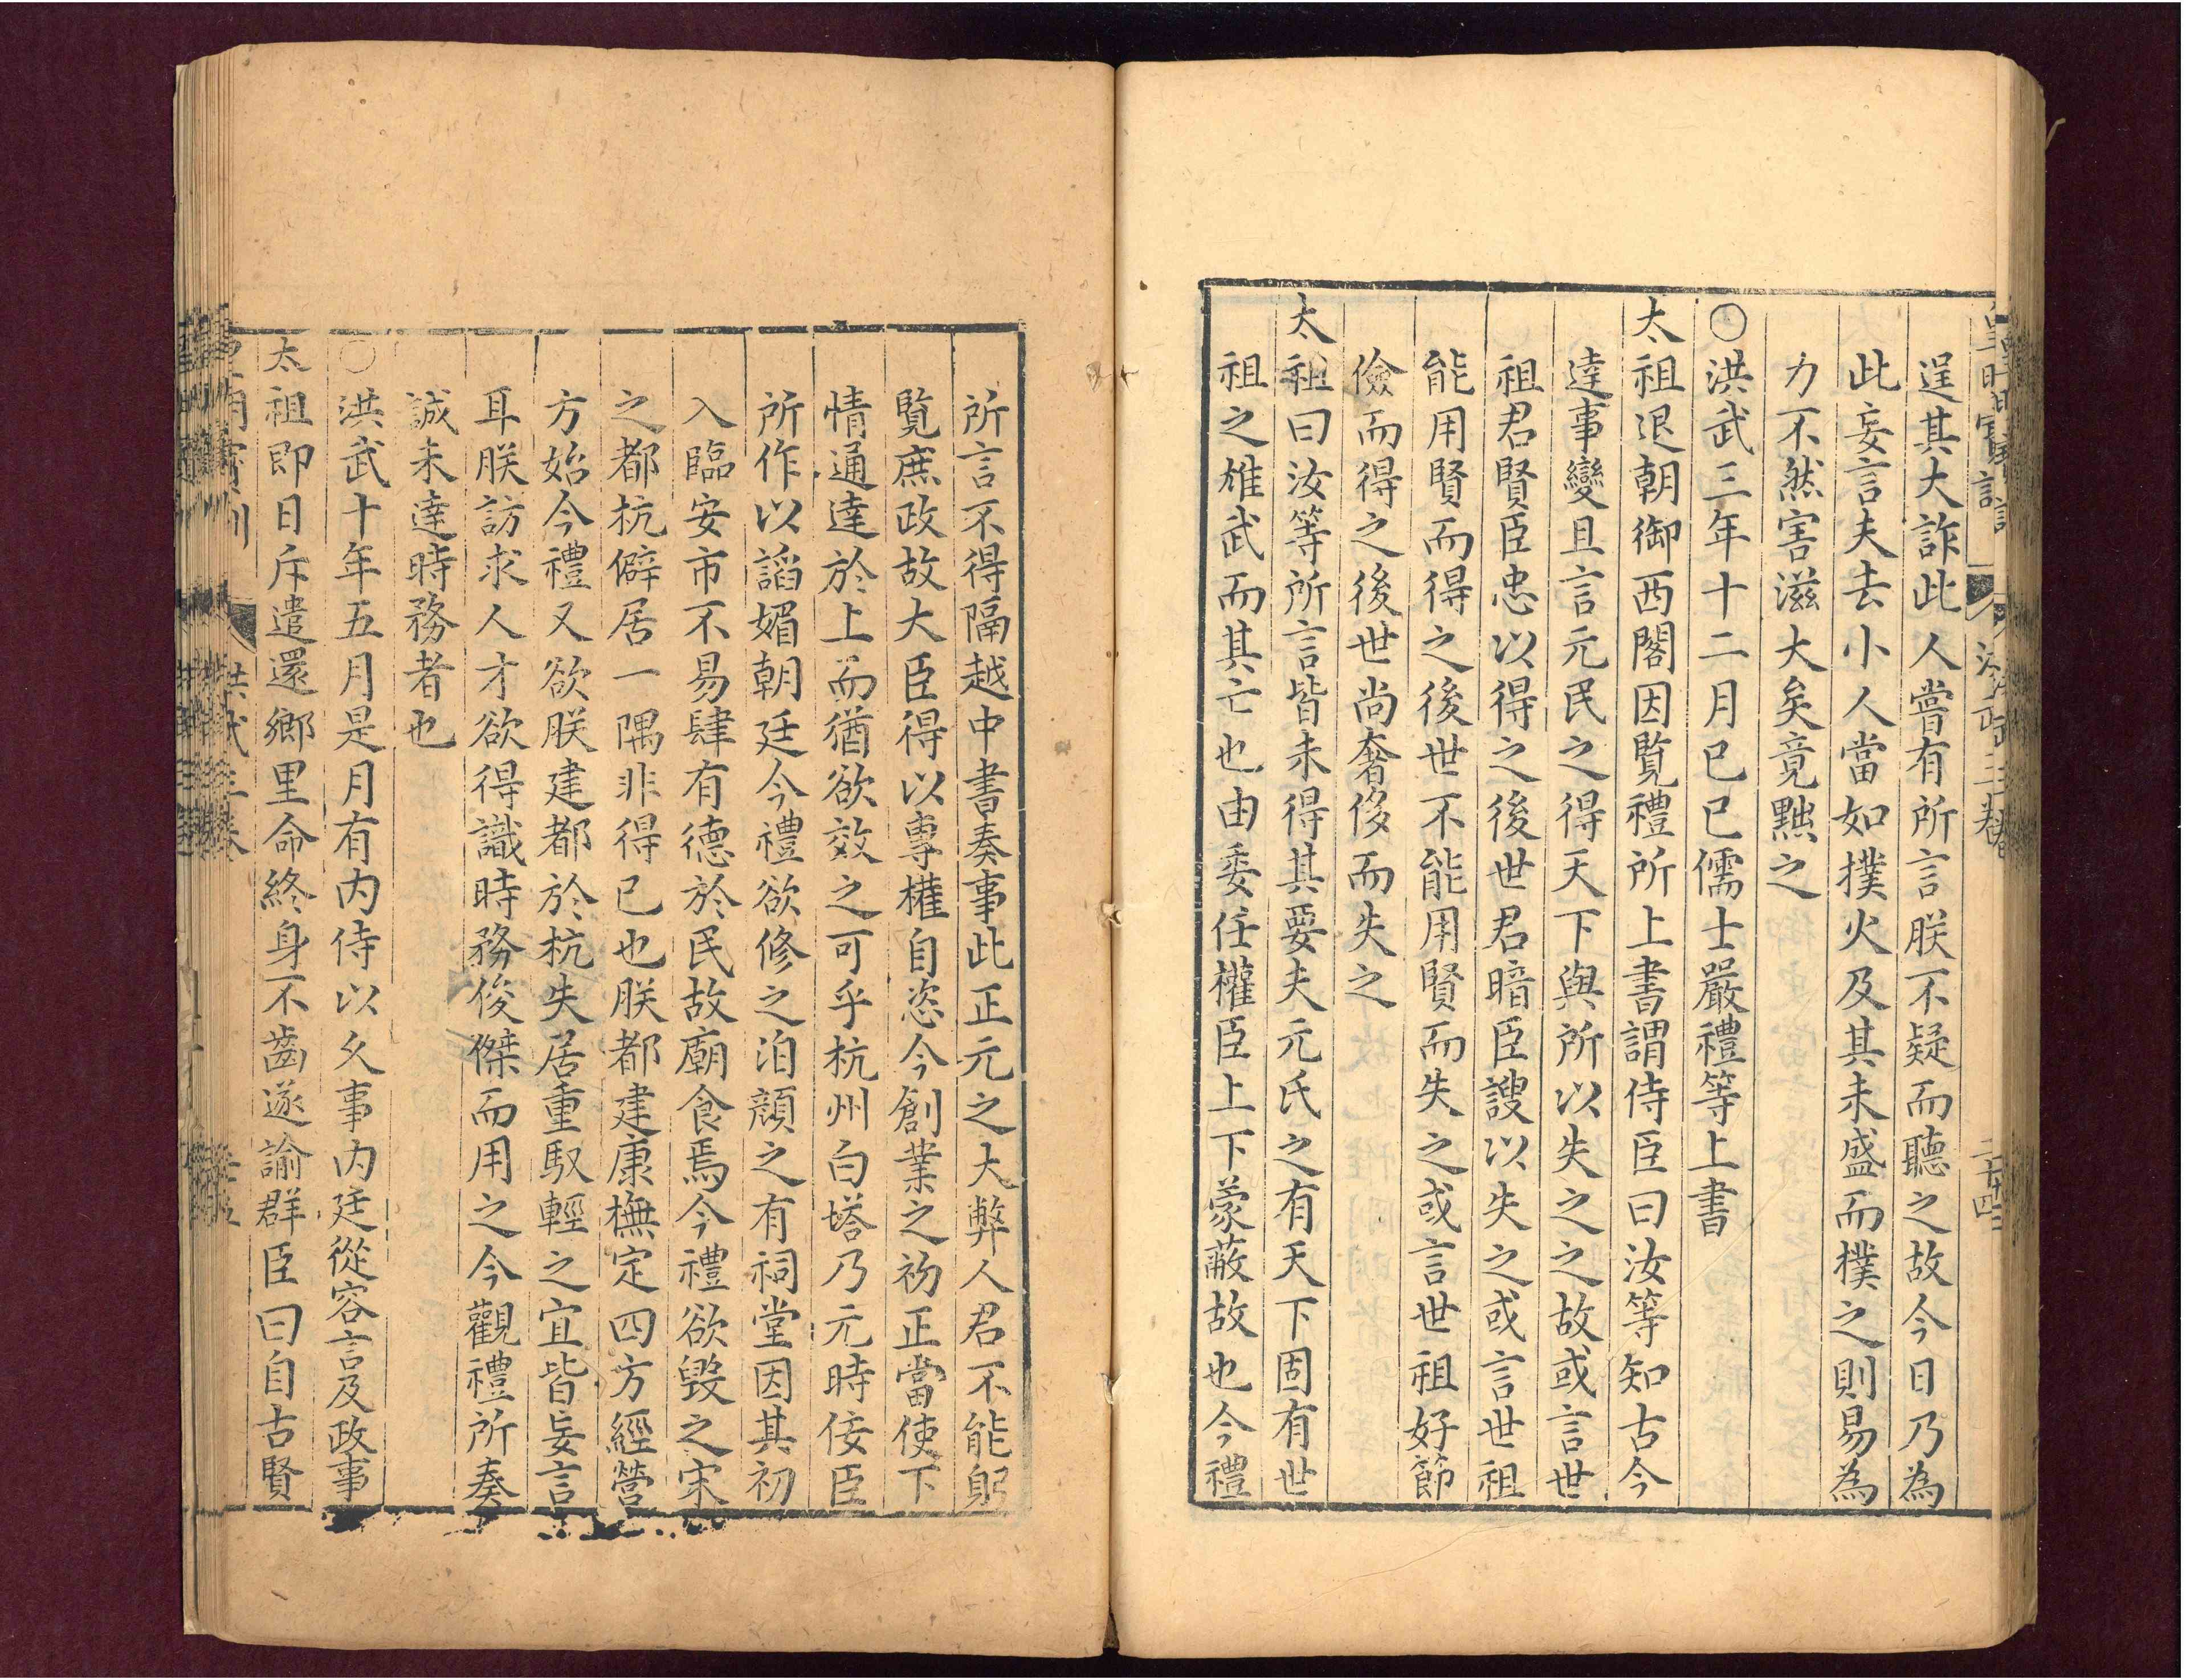 逞其大詐此人嘗有所言朕不疑而聽之故今日乃為
此妄言夫去小人當如撲火及其未盛而撲之則易為
力不然害滋大矣竟黜之
〇洪武三年十二月己巳儒士嚴禮等上書
太祖退朝御西閣因覽禮所上書謂侍臣曰汝等知古今
達事變且言元民之得天下與所以失之之故或言世
祖君賢臣忠以得之後世君暗臣諛以失之或言世祖
能用賢而得之後世不能用賢而失之或言世祖好節
儉而得之後世尚奢侈而失之
太祖曰汝等所言皆未得其要夫元氏之有天下固有世
祖之雄武而其亡也由委任權臣上下蒙蔽故也今禮
所言不得隔越中書奏事此正元之大弊人君不能躬
覽庶政故大臣得以專權自恣今創業之初正當使下
情通達於上而猶欲效之可乎杭州白塔乃元時佞臣
所作以謟媚朝廷今禮欲修之洎顏之有祠堂因其初
入臨安市不易肆有德於民故廟食焉今禮欲毀之宋
之都杭僻居一隅非得已也朕都建康撫定四方經營
方始今禮又欲朕建都於杭失居重馭輕之宜皆妄言
耳朕訪求人才欲得識時務俊傑而用之今觀禮所奏
誠未達時務者也
〇洪武十年五月是月有內侍以久事內廷從容言及政事
太祖即日斥遣還鄉里命終身不齒遂諭群臣曰自古賢